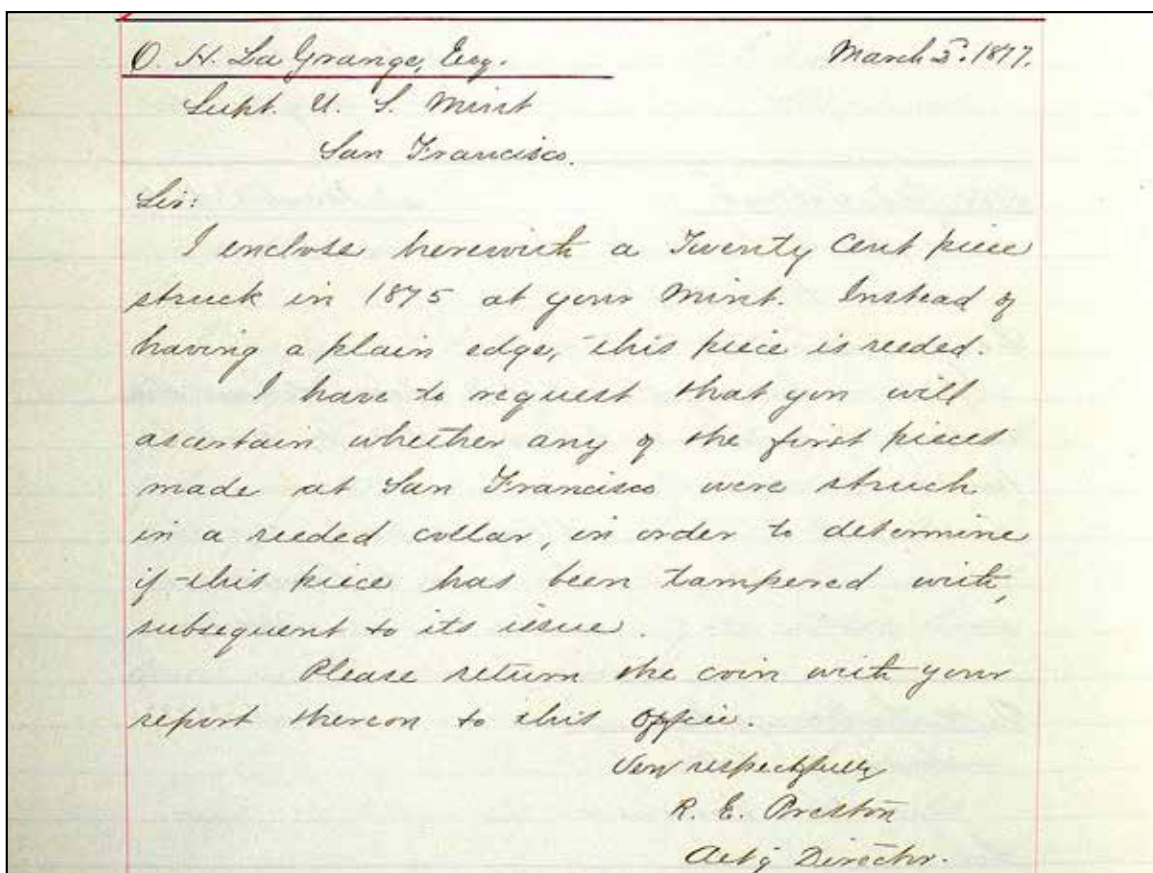 O. H. La Grange, Esq. March 5. 1877.
Supt. U. S. Mint
San Francisco.
Sir:
I enclose herewith a Twenty Cent piece
struck in 1875 at your Mint. Instead of
having a plain edge, this piece is reeded.
I have to request that you will
ascertain whether any of the first pieces
made at San Francisco were struck
in a reeded collar, in order to determine
if this piece has been tampered with,
subsequent to its issue.
Please return the coin with your
report thereon to this Office.
Very respectfully
R. E. Preston
Act'g Director.